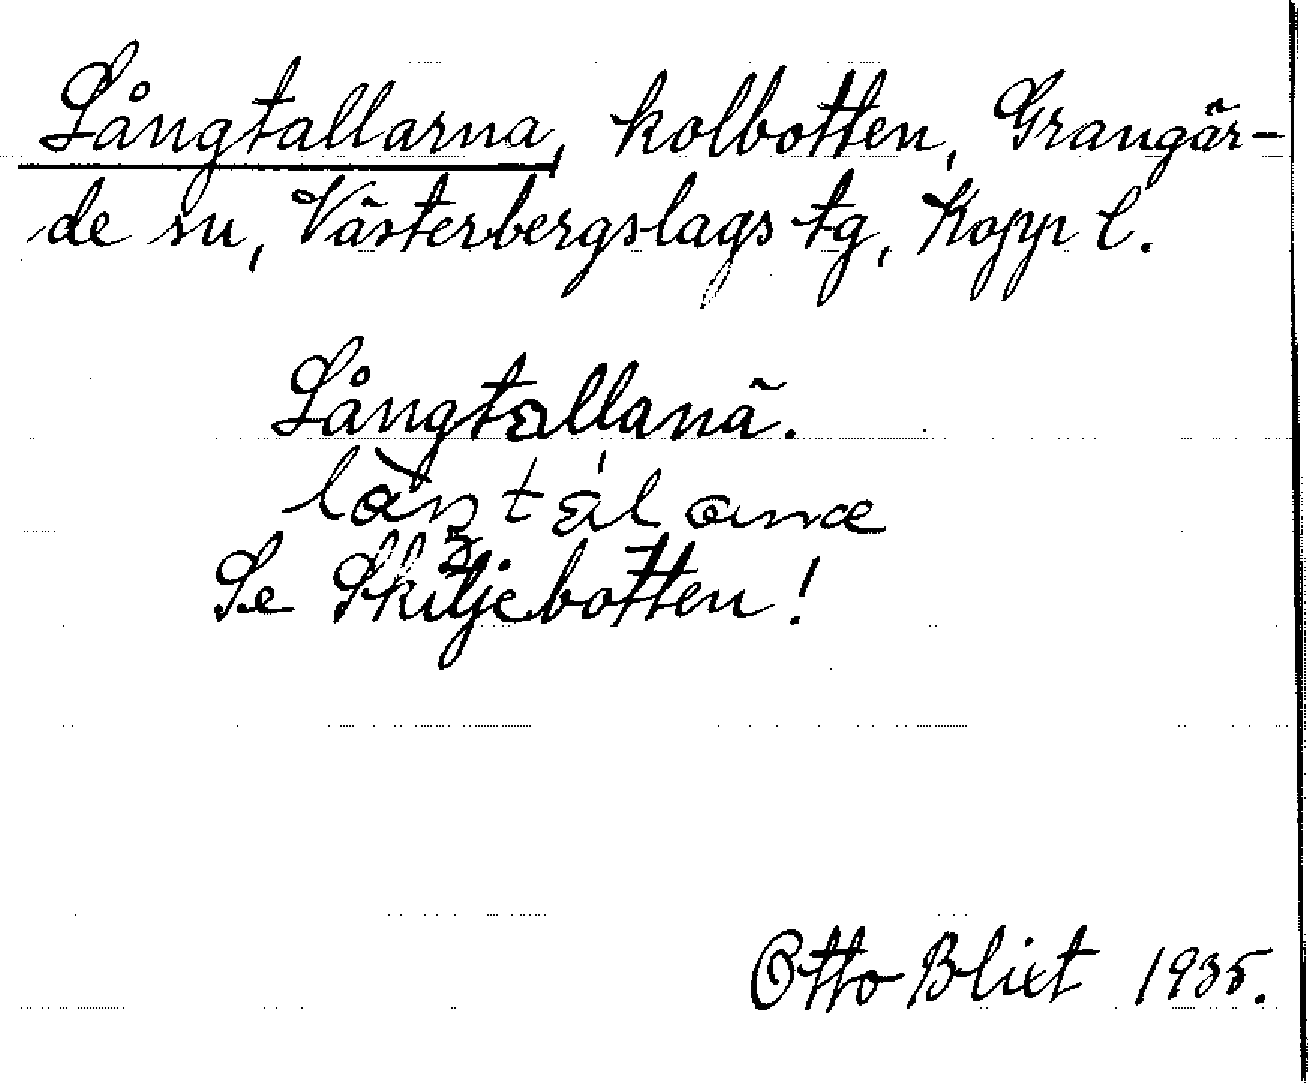 Långtallarna, kolbotten, Grangär-
de sn, Västerbergslags tg, Kopp l.
Långtallanä.
Se Skiljebotten!
Otto Blixt 1935.